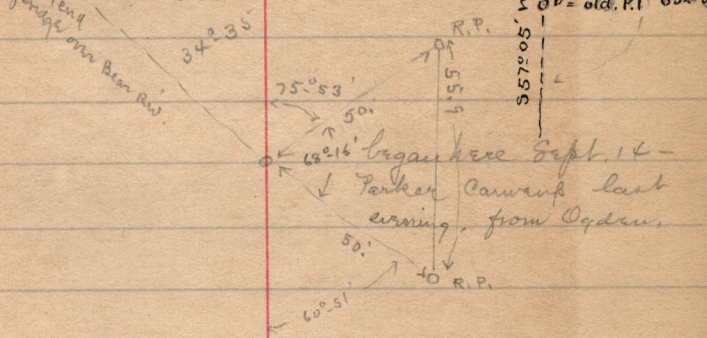 end
bridge over Bear Riv.
34°-35'
R.P.
O = old. P.I
S57°05'W
75°-53'
50.'
55.9
68°-16'
began here Sept. 14 -
Parker came up last
evening, from Ogden.
50.'
R.P.
60°-51'